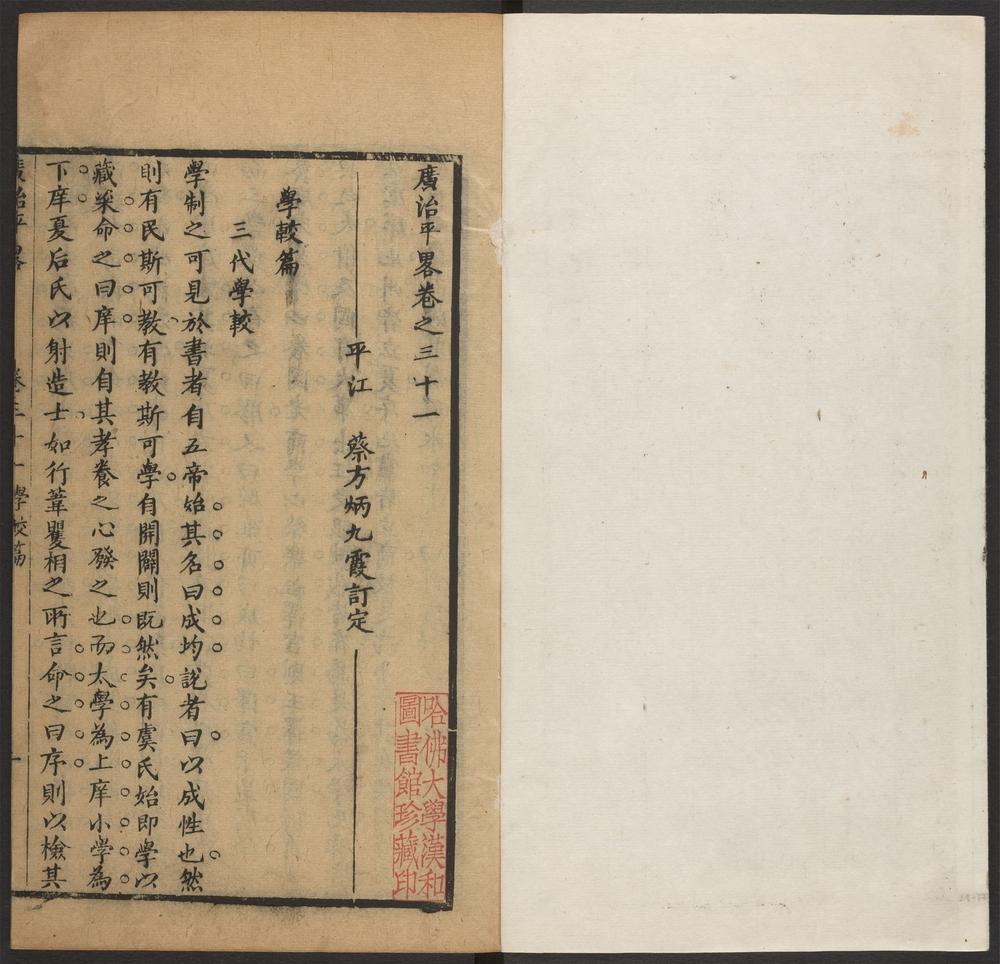 廣治平畧卷之三十一
平江　蔡方炳九霞訂定
學較篇
三代學較
學制之可見於書者自五帝始其名曰成均說者曰以成性也然
則有民斯可教有教斯可學自開闢則既然矣有虞氏始即學以
藏粢命之曰庠則自其孝養之心發之也而太學為上庠小學為
下庠夏后氏以射造士如行葦矍相之所言命之曰序則以檢其
廣治平畧　卷三十一　學校篇　一
哈佛大學漢和
圖書館珍藏印